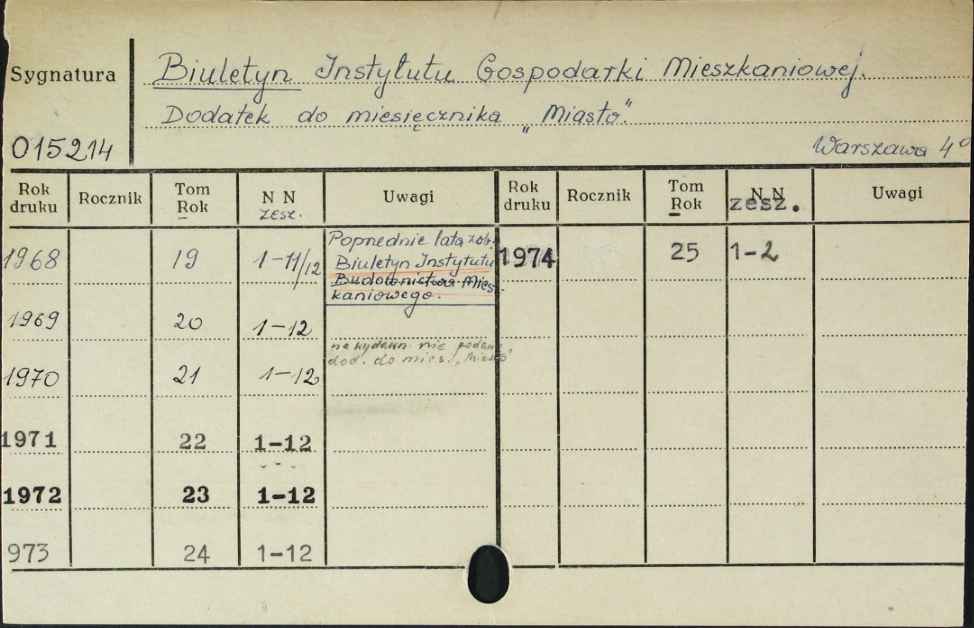 Sygnatura
Biuletyn Instytutu Gospodarki Mieszkaniowej.
Dodatek do miesięcznika „Miasto".
015214
Warszawa 4°
Rok druku Rocznik Tom Rok N N zesz. Uwagi Rok druku Rocznik Tom Rok N N zesz. Uwagi
1968 19 1-11/12 Poprzednie lata zob. 1974 25 1-2
Biuletyn Instytutu
Budownictwa Miesz-
kaniowego.
1969 20 1-12
na wydawn. nie podano
dod. do mies. „Miasto"
1970 21 1-12
1971 22 1-12
1972 23 1-12
973 24 1-12